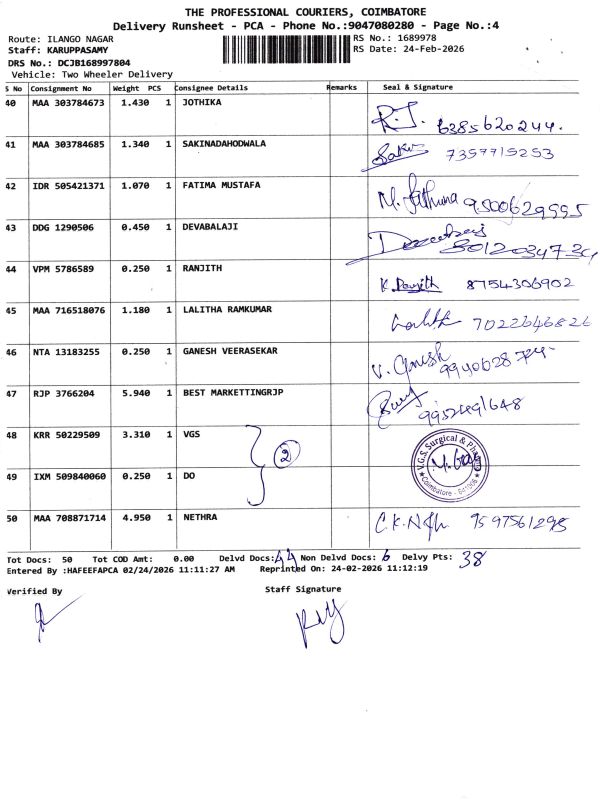 THE PROFESSIONAL COURIERS, COIMBATORE
Delivery Runsheet - PCA - Phone No.:9047080280 - Page No.:4
Route: ILANGO NAGAR
RS No.: 1689978
Staff: KARUPPASAMY
RS Date: 24-Feb-2026
DRS No.: DCJB168997804
Vehicle: Two Wheeler Delivery
S No Consignment No Weight PCS Consignee Details Remarks Seal & Signature
40 MAA 303784673 1.430 1 JOTHIKA R.J. 6385620244.
41 MAA 303784685 1.340 1 SAKINADAHODWALA Sakis 7357715253
42 IDR 505421371 1.070 1 FATIMA MUSTAFA M. Fathima 9500629995
43 DDG 1290506 0.450 1 DEVABALAJI
44 VPM 5786589 0.250 1 RANJITH K. Ranjith 8754306902
45 MAA 716518076 1.180 1 LALITHA RAMKUMAR Lalith 7022646826
46 NTA 13183255 0.250 1 GANESH VEERASEKAR V. Ganesh
47 RJP 3766204 5.940 1 BEST MARKETTINGRJP
48 KRR 50229509 3.310 1 VGS
2
V.G.S. Surgical & Pharma
Coimbatore - 641006
49 IXM 509840060 0.250 1 DO
50 MAA 708871714 4.950 1 NETHRA 9597561295
Tot Docs: 50 Tot COD Amt: 0.00 Delvd Docs: 44 Non Delvd Docs: 6 Delvy Pts: 38
Entered By :HAFEEFAPCA 02/24/2026 11:11:27 AM Reprinted On: 24-02-2026 11:12:19
Verified By
Staff Signature